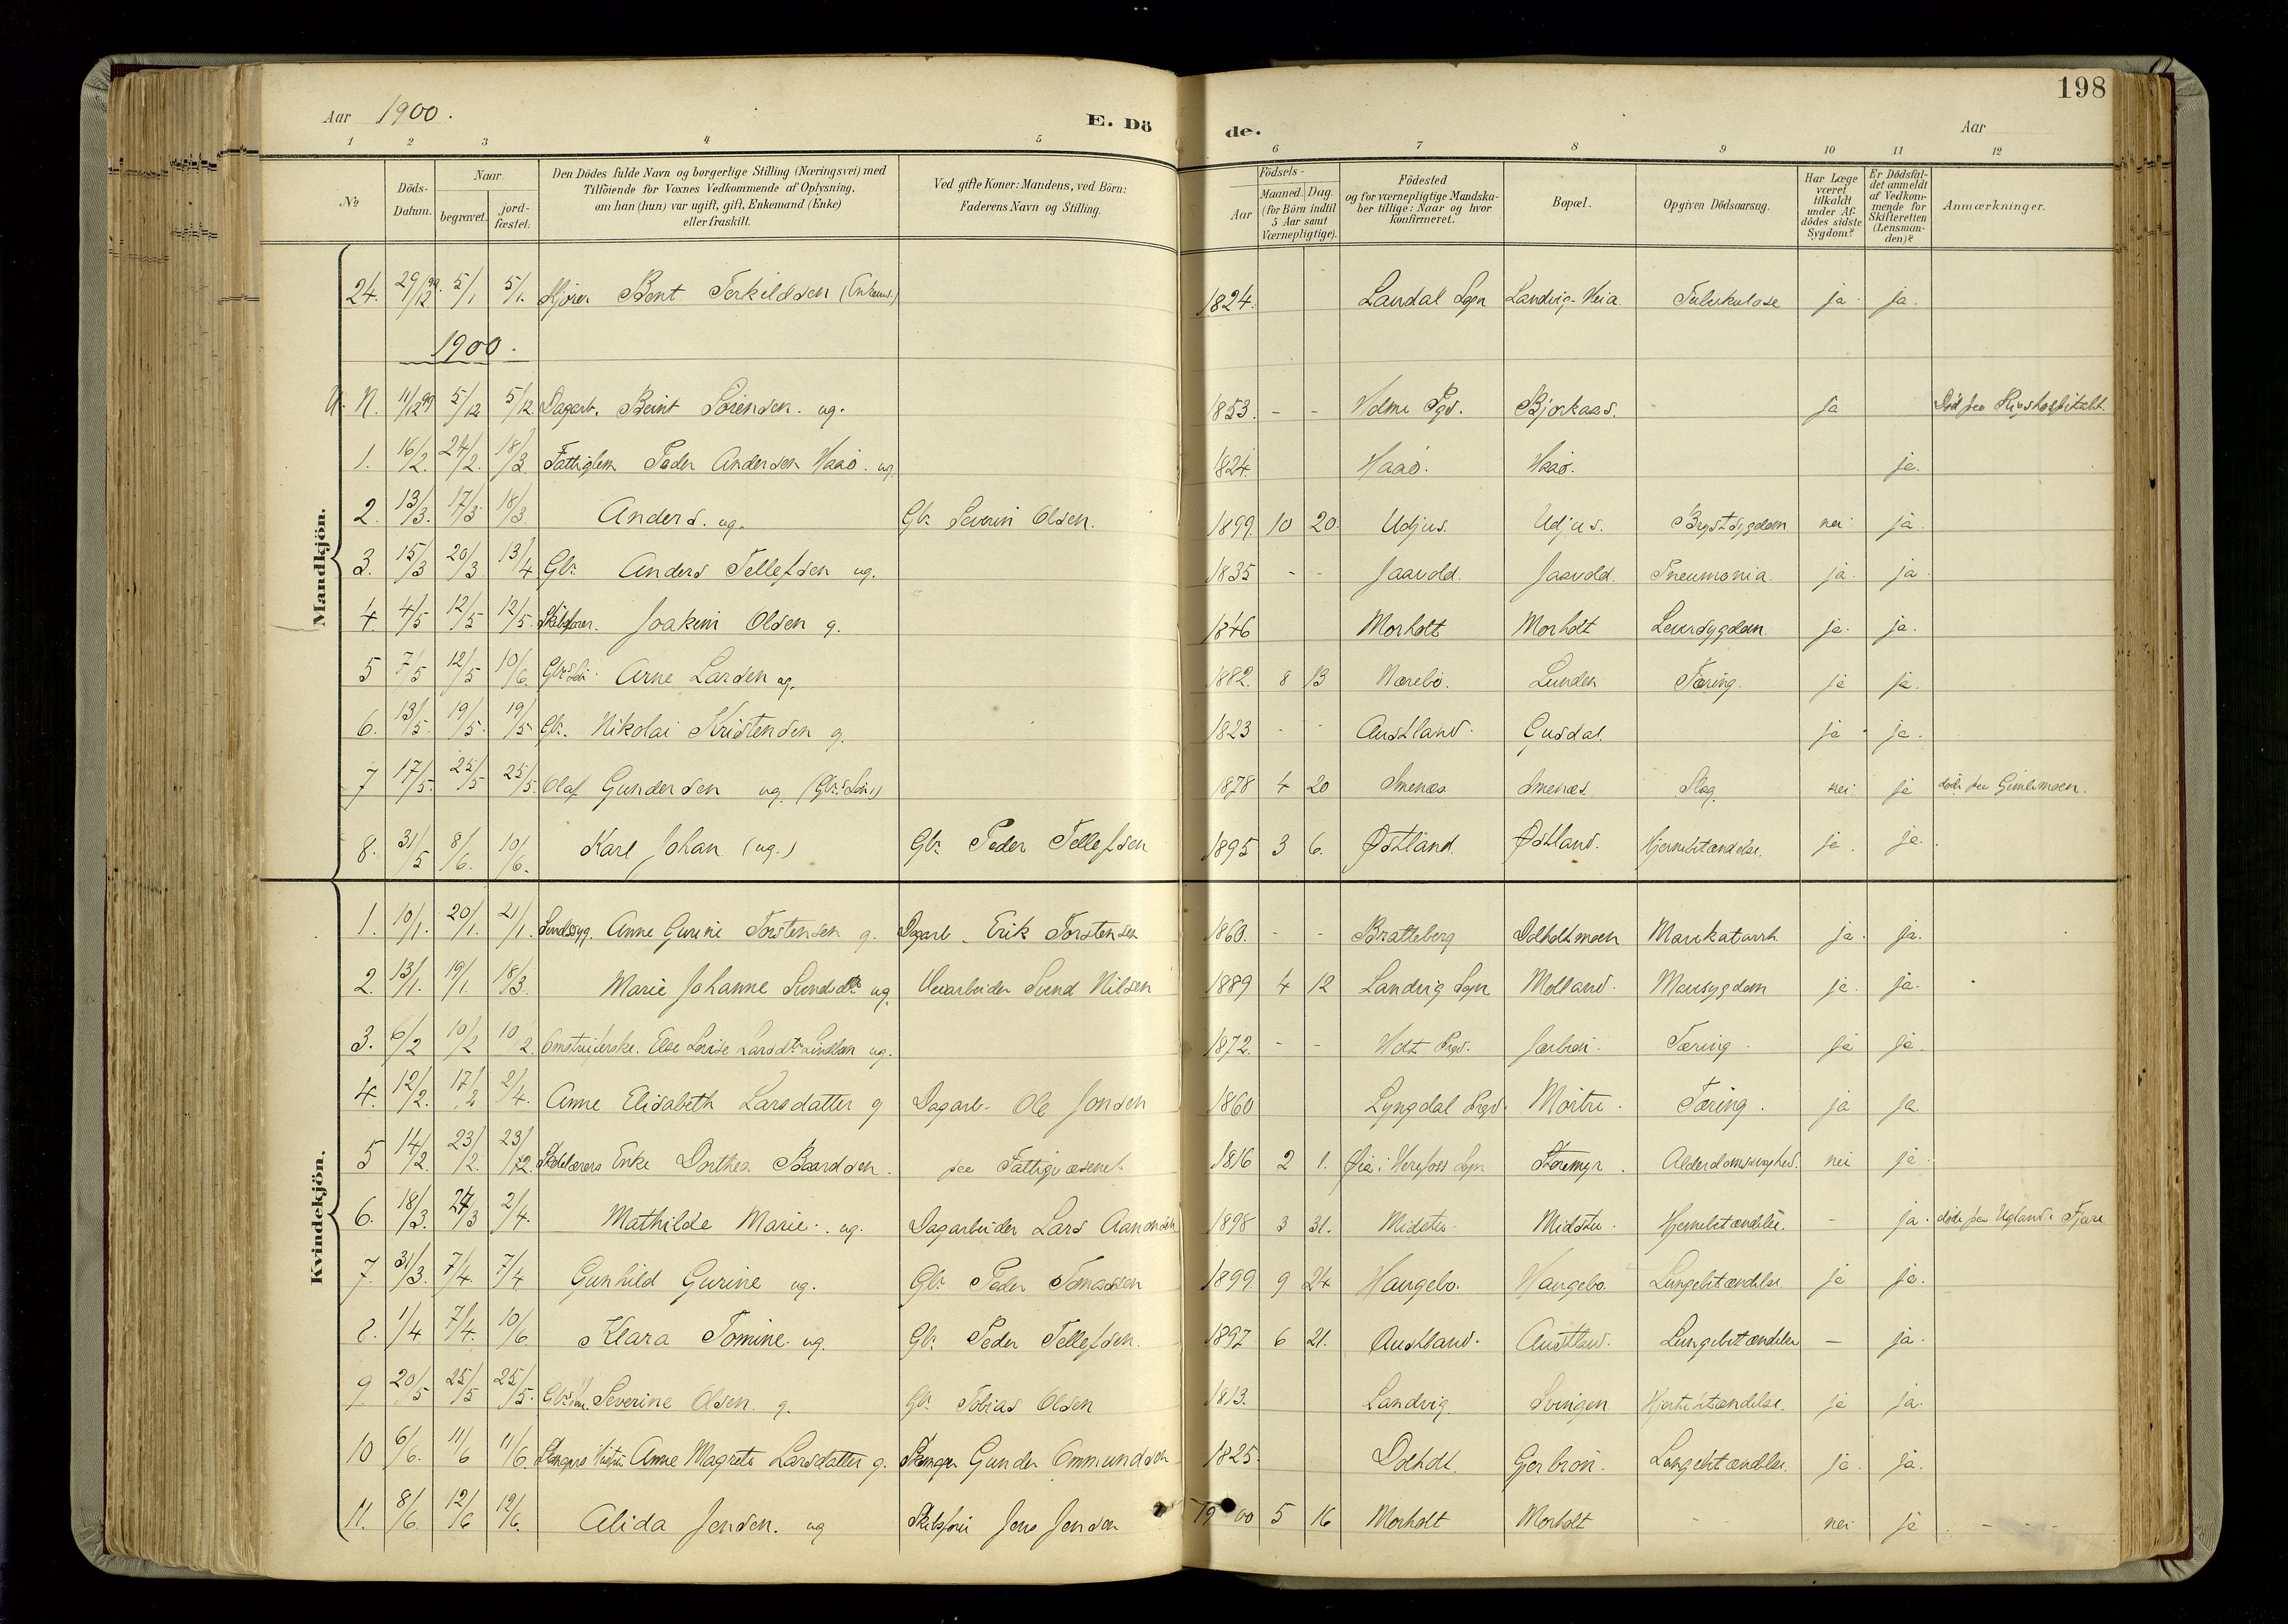 198
Aar 1900. E. Dö de. Aar
1 2 3 4 5 6 7 8 9 10 11 12
№
Döds-Datum.
Naar
begravet.
jordfæstet.
Den Dödes fulde Navn og borgerlige Stilling (Næringsvei) med
Tilföiende for Voxnes Vedkommende af Oplysning,
om han (hun) var ugift, gift, Enkemand (Enke)
eller fraskilt.
Ved gifte Koner: Mandens, ved Börn:
Faderens Navn og Stilling.
Födsels-
Aar
Maaned. Dag.
(for Börn indtil
5 Aar samt
Værnepligtige).
Födested
og for værnepligtige Mandska-
ber tillige: Naar og hvor
konfirmeret.
Bopæl.
Opgiven Dödsaarsag.
Har Læge
været
tilkaldt
under Af-
dödes sidste
Sygdom?
Er Dödsfal-
det anmeldt
af Vedkom-
mende for
Skifteretten
(Lensman-
den)?
Anmærkninger.
Mandkjön.
24. 29/12 99. 5/1 5/1. Bent Terkildsen (Enkem.) 1824. Landvig-Heia ja. ja.
1900.
N. 11/12 99 5/12 5/12 Dagarb. Beint Sörensen. ug. 1853. - - Holme Pgd. Bjorkaas. - ja Död paa Rigshospitalet.
1. 16/2. 24/2. 18/3. Fattiglem Peder Andersen Haaö. ug 1824. Haaö. Haaö. ja.
2. 13/3. 17/3 18/3 Anders. ug. Gbr Severin Olsen. 1899. 10 20. Udjus. Udjus. Brystsygdom nei ja
3. 15/3 20/3 13/4 Gbr Anders Tellefsen ug. 1835 - - Jaavold. Jaavold. Pneumonia. ja. ja
4. 4/5 12/5 12/5. Skibsförer. Joakim Olsen g. 1846 Morholt Morholt Leversygdom. ja. ja.
5 7/5 12/5 10/6. Arne Larsen ug. 1882. 8 13 Nærebö. Lunden Tæring. ja ja.
6. 13/5. 19/5. 19/5 Gbr. Nikolai Kristensen g. 1823 - - Austland. Gusdal. ja ja.
7 17/5. 25/5 25/5. Olaf Gundersen ug. (Gbr. Sön) 1878 4 20 Smenæs Smenæs. Slag. nei ja döde paa Gimlemoen.
8. 31/5 8/6. 10/6. Karl Johan (ug.) Gbr Peder Tellefsen 1895 3 6. Østland. Østland. Hjernebetændelse. ja. ja.
Kvindekjön.
1. 10/1. 20/1. 21/1. Anne Gurine Torstensen g. Dagarb. Erik Torstensen 1860. - - Bratteberg Dolholtmoen Mavekatarrh ja. ja.
2. 13/1. 19/1. 18/3. Marie Johanne Sundsdtr ug. Sund Nilsen 1889 4 12 Landvig Sogn Molland. Mavesygdom ja. ja.
3. 6/2 10/2 10/2. Else Lovise Larsdtr ug. 1872. - - Holt Prgd. Jærbron. Tæring. ja ja.
4. 12/2. 17/2 2/4. Anne Elisabeth Larsdatter g Dagarb. Ole Jonsen 1860 Lyngdal Prgd. Tæring. ja ja.
5 14/2. 23/2. 23/2. Enke Dorthea Baardsen. paa Fattigvæsenet. 1816 2 1. Storemyr. Alderdomssvaghed. nei ja
6. 18/3. 24/3 2/4. Mathilde Marie. ug. Dagarbeider Lars Aanonsen 1898 3 31. Midstu Midstu. Hjernebetændelse. - ja. döde paa Ugland i Fjære
7. 31/3. 7/4. 7/4 Gunhild Gurine ug. Gbr Peder Tomassen 1899. 9 24 Haugebo. Haugebo. Lungebetændelse. ja ja.
8. 1/4 7/4. 10/6. Klara Tomine. ug. Gbr. Peder Tellefsen. 1897 6 21. Austland. Austland. Lungebetændelse — ja.
9. 20/5 25/5 25/5. Severine Olsen. g. Gbr Tobias Olsen 1813. Landvig. Svingen Hjertebetændelse. ja ja.
10 6/6. 11/6 11/6. Anne Magrete Larsdatter g. Gunder Ommundsen 1825. Dolholt. Gjerbron. Lungebetændelse. ja. ja.
11. 8/6. 12/6 12/6. Alida Jensen. ug Skibsförer Jens Jensen 1900 5 16 Morholt Morholt - - nei ja. - - -